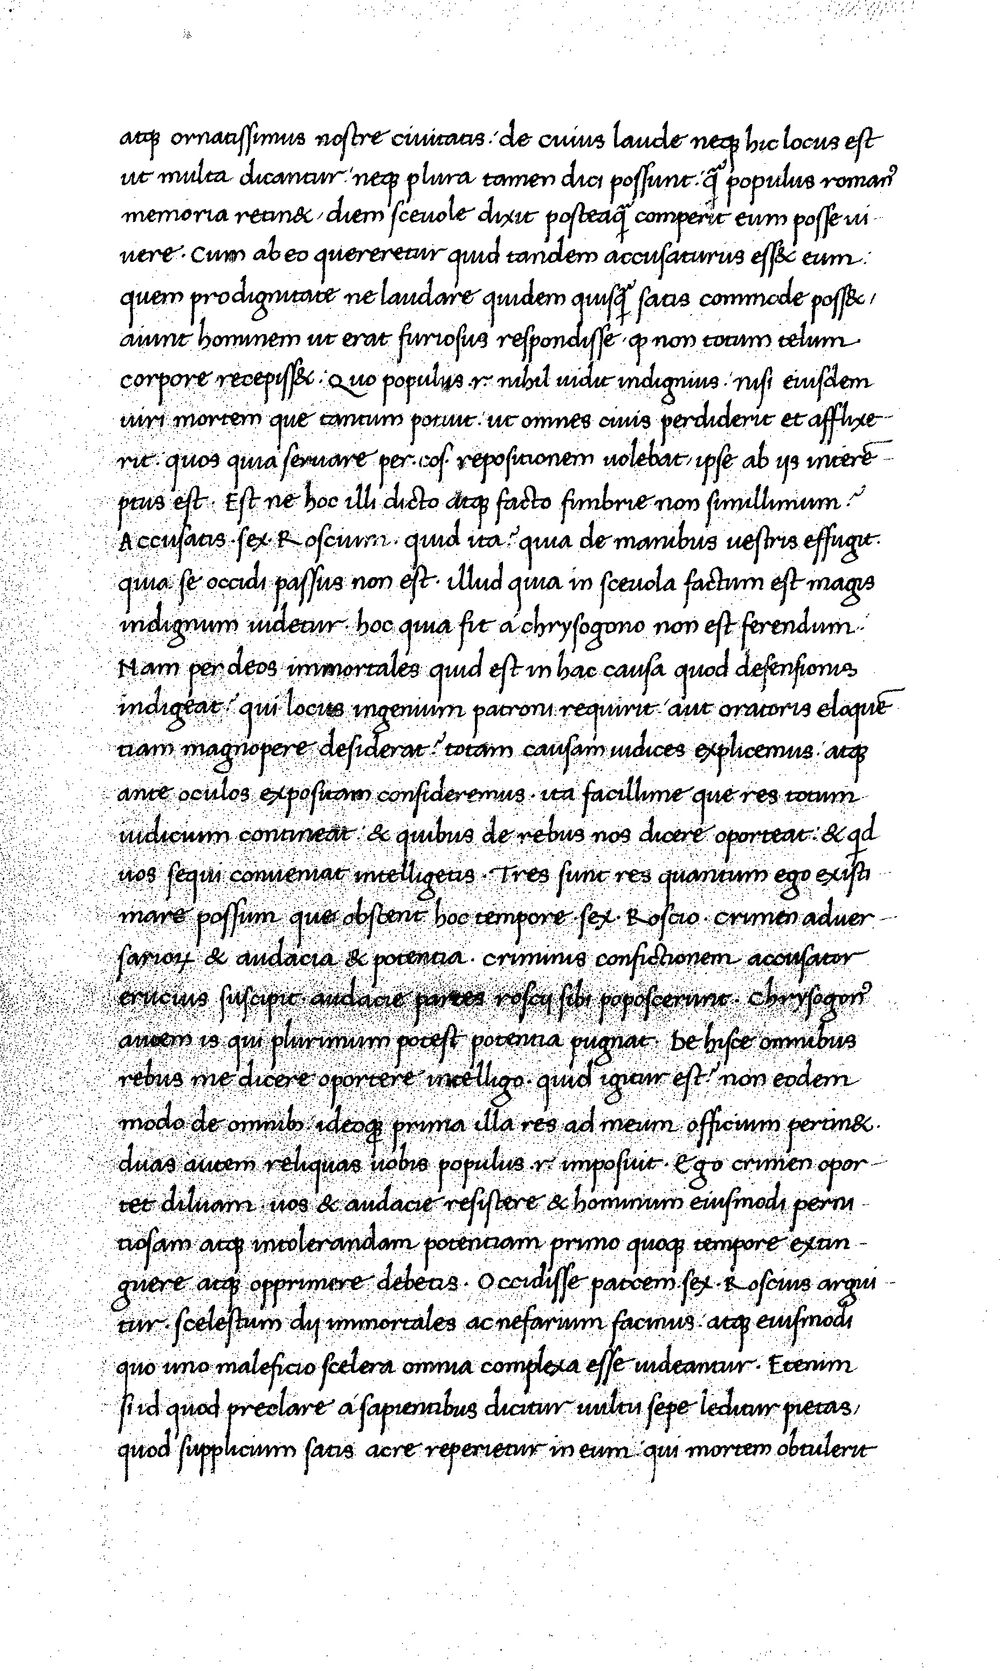 atqꝫ ornatissimus nostre ciuitatis: de cuius laude neqꝫ hic locus est
ut multa dicantur: neqꝫ plura tamen dici possunt: q̃ populus romanꝰ
memoria retin& / diem sceuole dixit posteaq̃ comperit eum posse ui-
uere. Cum ab eo quereretur quid tandem accusaturus ess& eum:
quem pro dignitate ne laudare quidem quisq̃ satis commode poss& /
aiunt hominem ut erat furiosus respondisse. ꝙ non totum telum
corpore recepiss&. Quo populus .r. nihil uidit indignius. nisi eiusdem
uiri mortem que tantum potuit: ut omnes ciuis perdiderit et afflixe-
rit. quos quia seruare per. cos. repositionem uolebat / ipse ab iis interē-
ptus est. Est ne hoc illi dicto atqꝫ facto fimbrie non simillimum?
Accusatis. sex. Roscium. quid ita? quia de manibus uestris effugit.
quia se occidi passus non est. illud quia in sceuola factum est magis
indignum uidetur. hoc quia fit a chrysogono non est ferendum:
Nam per deos immortales quid est in hac causa quod defensionis
indigeat? qui locus ingenium patroni requirit: aut oratoris eloquē
tiam magnopere desiderat? totam causam iudices explicemus: atqꝫ
ante oculos expositam consideremus. ita facillime que res totum
iudicium contineat: & quibus de rebus nos dicere oporteat: & qd
uos sequi conueniat intelligetis. Tres sunt res quantum ego existi
mare possum que obstent hoc tempore. sex. Roscio. crimen aduer-
sarioꝝ & audacia & potentia. criminis confictionem accusator
erucius suscipit. audacie partes roscii sibi poposcerunt. Chrysogonꝰ
autem is qui plurimum potest potentia pugnat. De hisce omnibus
rebus me dicere oportere intelligo. quid igitur est? non eodem
modo de omnibꝰ. ideoqꝫ prima illa res ad meum officium pertin&.
duas autem reliquas uobis populus .r. imposuit. Ego crimen opor-
tet diluam. uos & audacie resistere & hominum eiusmodi perni-
tiosam atqꝫ intolerandam potentiam primo quoqꝫ tempore extin-
guere atqꝫ opprimere debetis. Occidisse patrem. sex. Roscius argui-
tur. scelestum dii immortales ac nefarium facinus: atqꝫ eiusmodi
quo uno maleficio scelera omnia complexa esse uideantur. Etenim
si id quod preclare a sapientibus dicitur uultu sepe leditur pietas /
quod supplicium satis acre reperietur in eum: qui mortem obtulerit